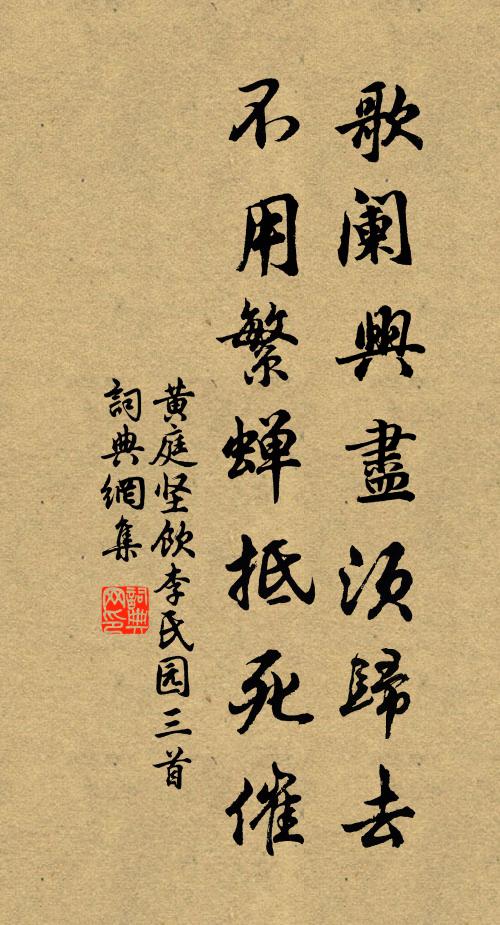 歌阑興盡須歸去
不用繁蝉抵死催
黄庭坚飲李氏园三首
詞典網集
詞典网印